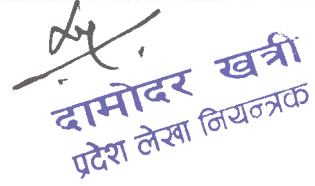 दामोदर खत्री
प्रदेश लेखा नियन्त्रक